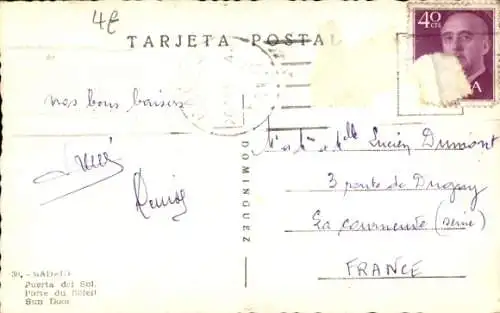 4€
TARJETA POSTAL
40 CTS
nos bons baisers
André
Denise
DOMINGUEZ
Mr et Mme et Mlle Lucien Dumont
3 route de Dugny
La courneuve (seine)
FRANCE
- MADRID
Puerta del Sol.
Porte du Soleil
Sun Door